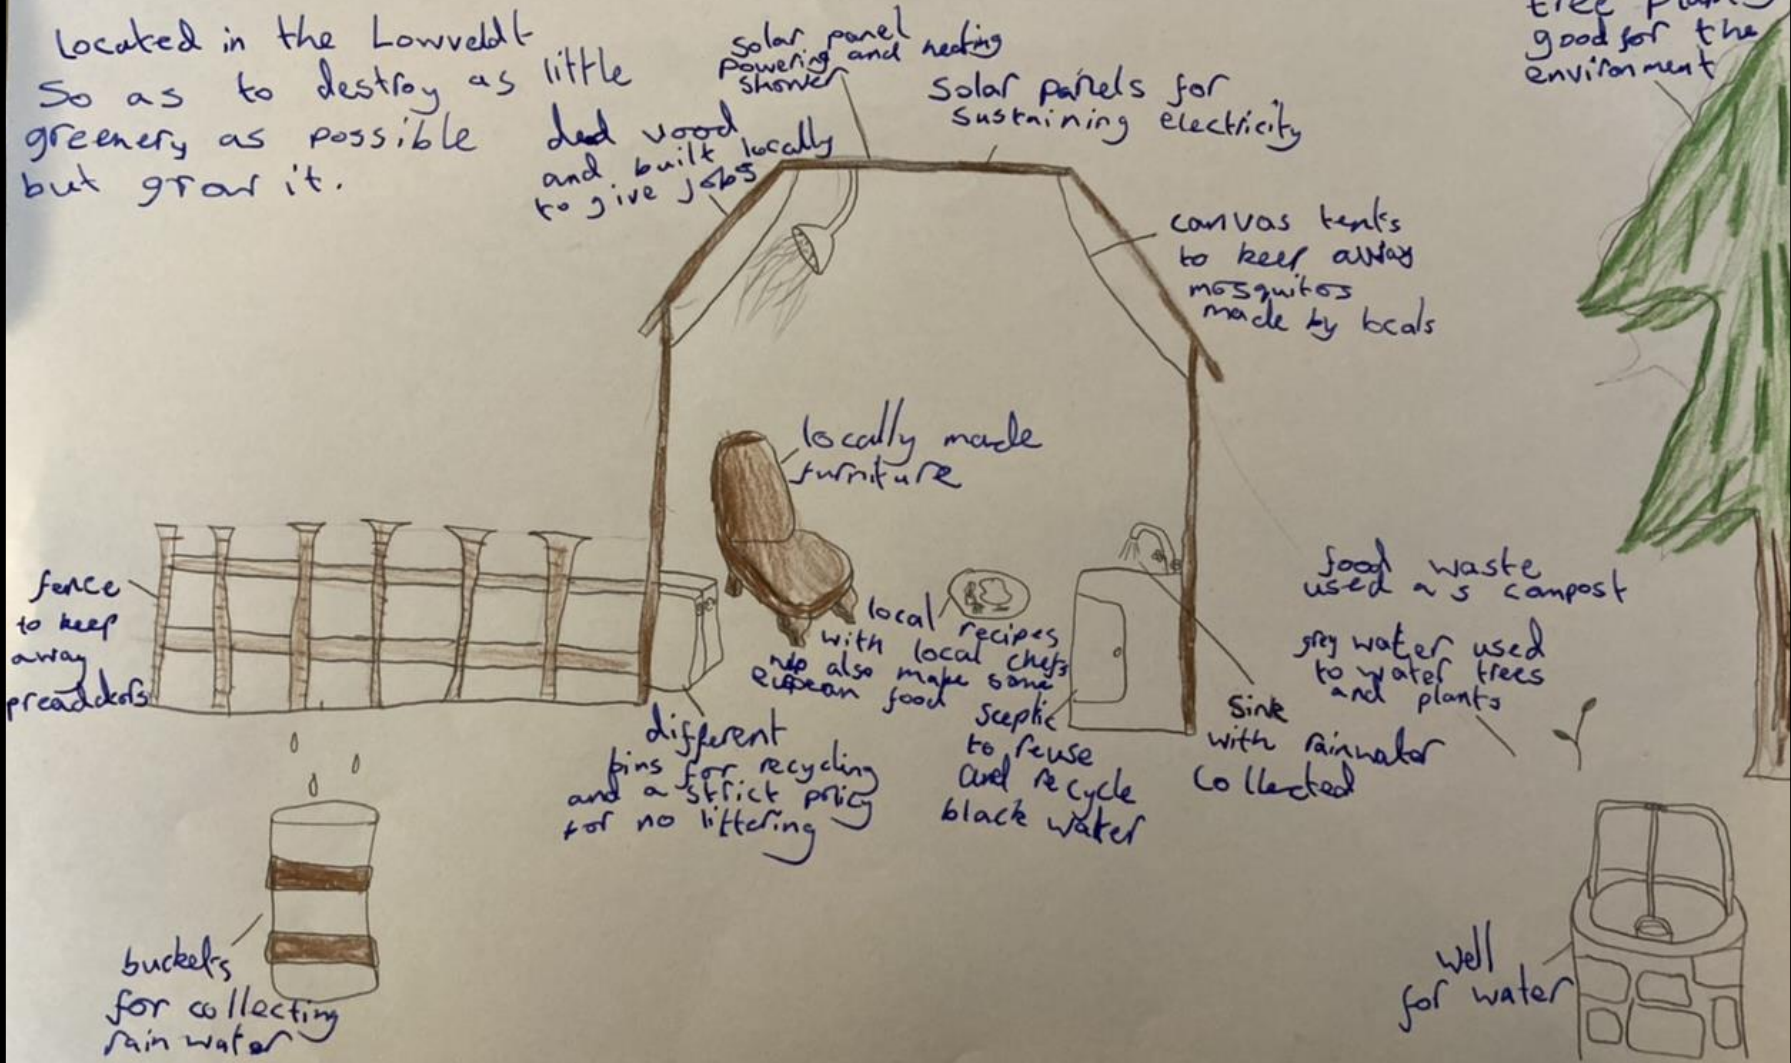 Located in the Lowveldt
so as to destroy as little
greenery as possible
but grow it.
solar panel
powering and heating
shower
solar panels for
sustaining electricity
ded wood
and built locally
to give jobs
canvas tents
to keep away
mosquitos
made by locals
good for the
environment
locally made
furniture
fence
to keep
away
preaddors
local recipes
with local chefs
also make some
european food
food waste
used as compost
grey water used
to water trees
and plants
different
bins for recycling
and a strict policy
for no littering
sceptic
to reuse
and recycle
black water
Sink
with rainwater
collected
buckets
for collecting
rain water
well
for water